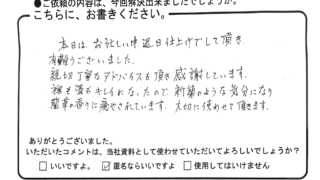 ●ご依頼の内容は、今回解決出来ましたでしょうか。
こちらに、お書きください。
本日は、お忙しい中返日仕上げでして頂き
有難うございました。
親切丁寧なアドバイスも頂き感謝しています。
襖も畳もキレイになったので新築のような気分になり
藺草の香りに癒やされています。大切に使わせて頂きます。
ありがとうございました。
いただいたコメントは、当社資料として使わせていただいてよろしいでしょうか?
□いいですよ。 ☑匿名ならいいですよ □使用してはいけません